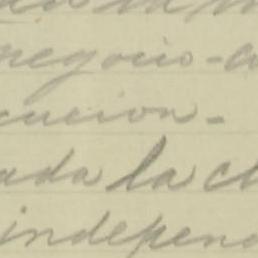 negocio-
cucion.-
ada la cl
independ